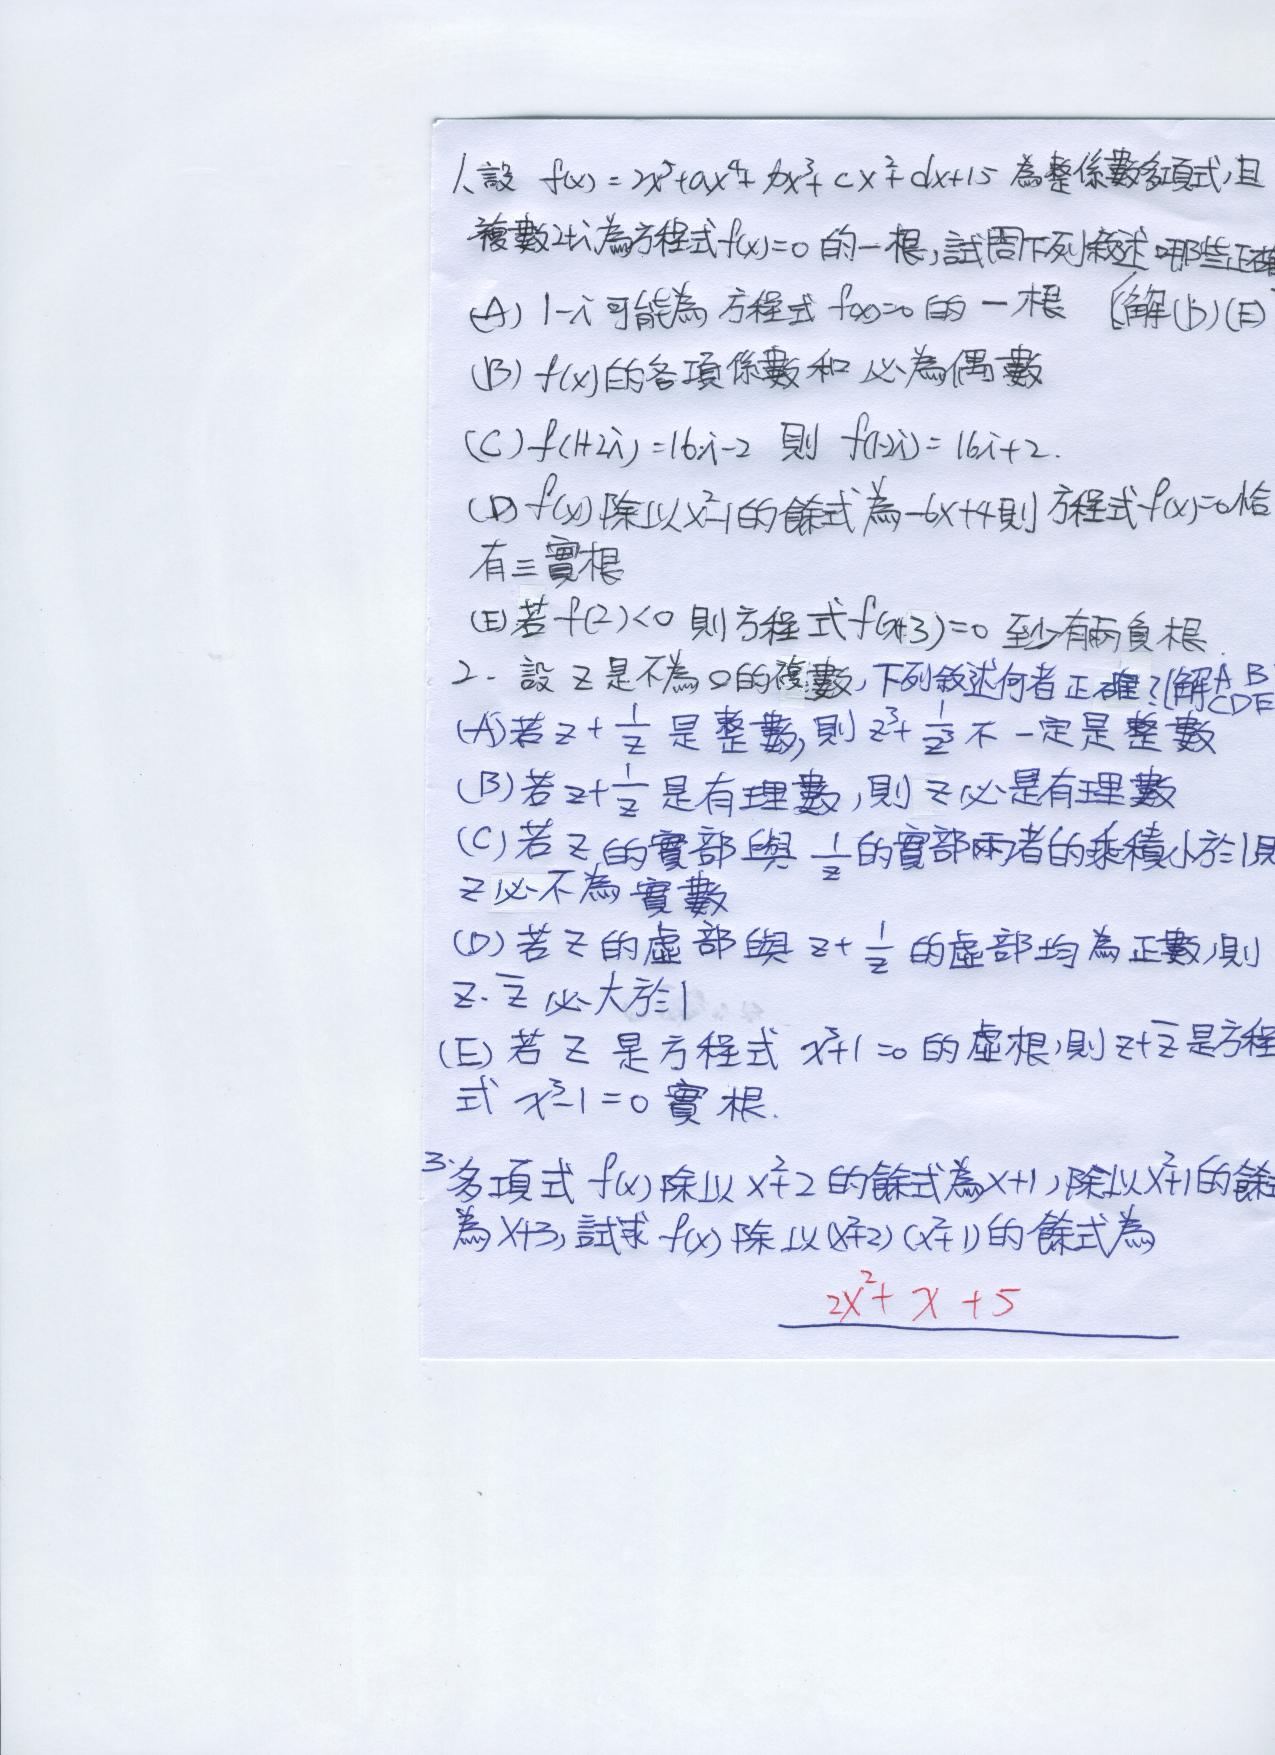 1、設 f(x)=2x⁵+ax⁴+bx³+cx²+dx+15 為整係數多項式,且
複數2+i為方程式f(x)=0的一根,試問下列敘述哪些正確
(A) 1-i 可能為方程式 f(x)=0 的一根 (解(b)(E)
(B) f(x)的各項係數和必為偶數
(C) f(1+2i)=16i-2 則 f(1-2i)=16i+2.
(D) f(x)除以x²-1的餘式為-6x+4則方程式f(x)=0恰
有三實根
(E)若f(2)<0則方程式f(x+3)=0至少有兩負根
2. 設Z是不為0的複數,下列敘述何者正確?(解A B
CDE
(A)若z+1/z是整數,則z³+1/z³不一定是整數
(B)若z+1/z是有理數,則z必是有理數
(C)若Z的實部與1/z的實部兩者的乘積小於1則
Z必不為實數
(D)若Z的虛部與z+1/z的虛部均為正數,則
z·z̅必大於1
(E)若Z是方程式x³+1=0的虛根,則z+z̅是方程
式x³-1=0實根.
3.多項式f(x)除以x²+2的餘式為x+1,除以x²+1的餘式
為x+3,試求f(x)除以(x²+2)(x²+1)的餘式為
2x²+x+5